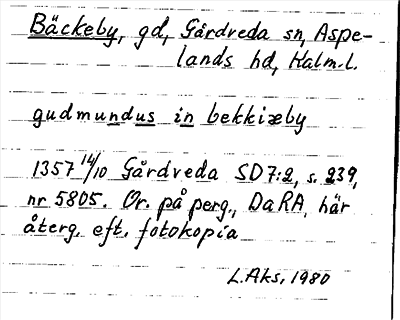 Bäckeby, gd, Gårdveda sn, Aspe-
lands hd, Kalm.l.
gudmundus in bekkiæby
1357 14/10 Gårdveda SD7:2, s. 239,
nr 5805. Or. på perg., DaRA, här
återg. eft. fotokopia
L.Aks, 1980